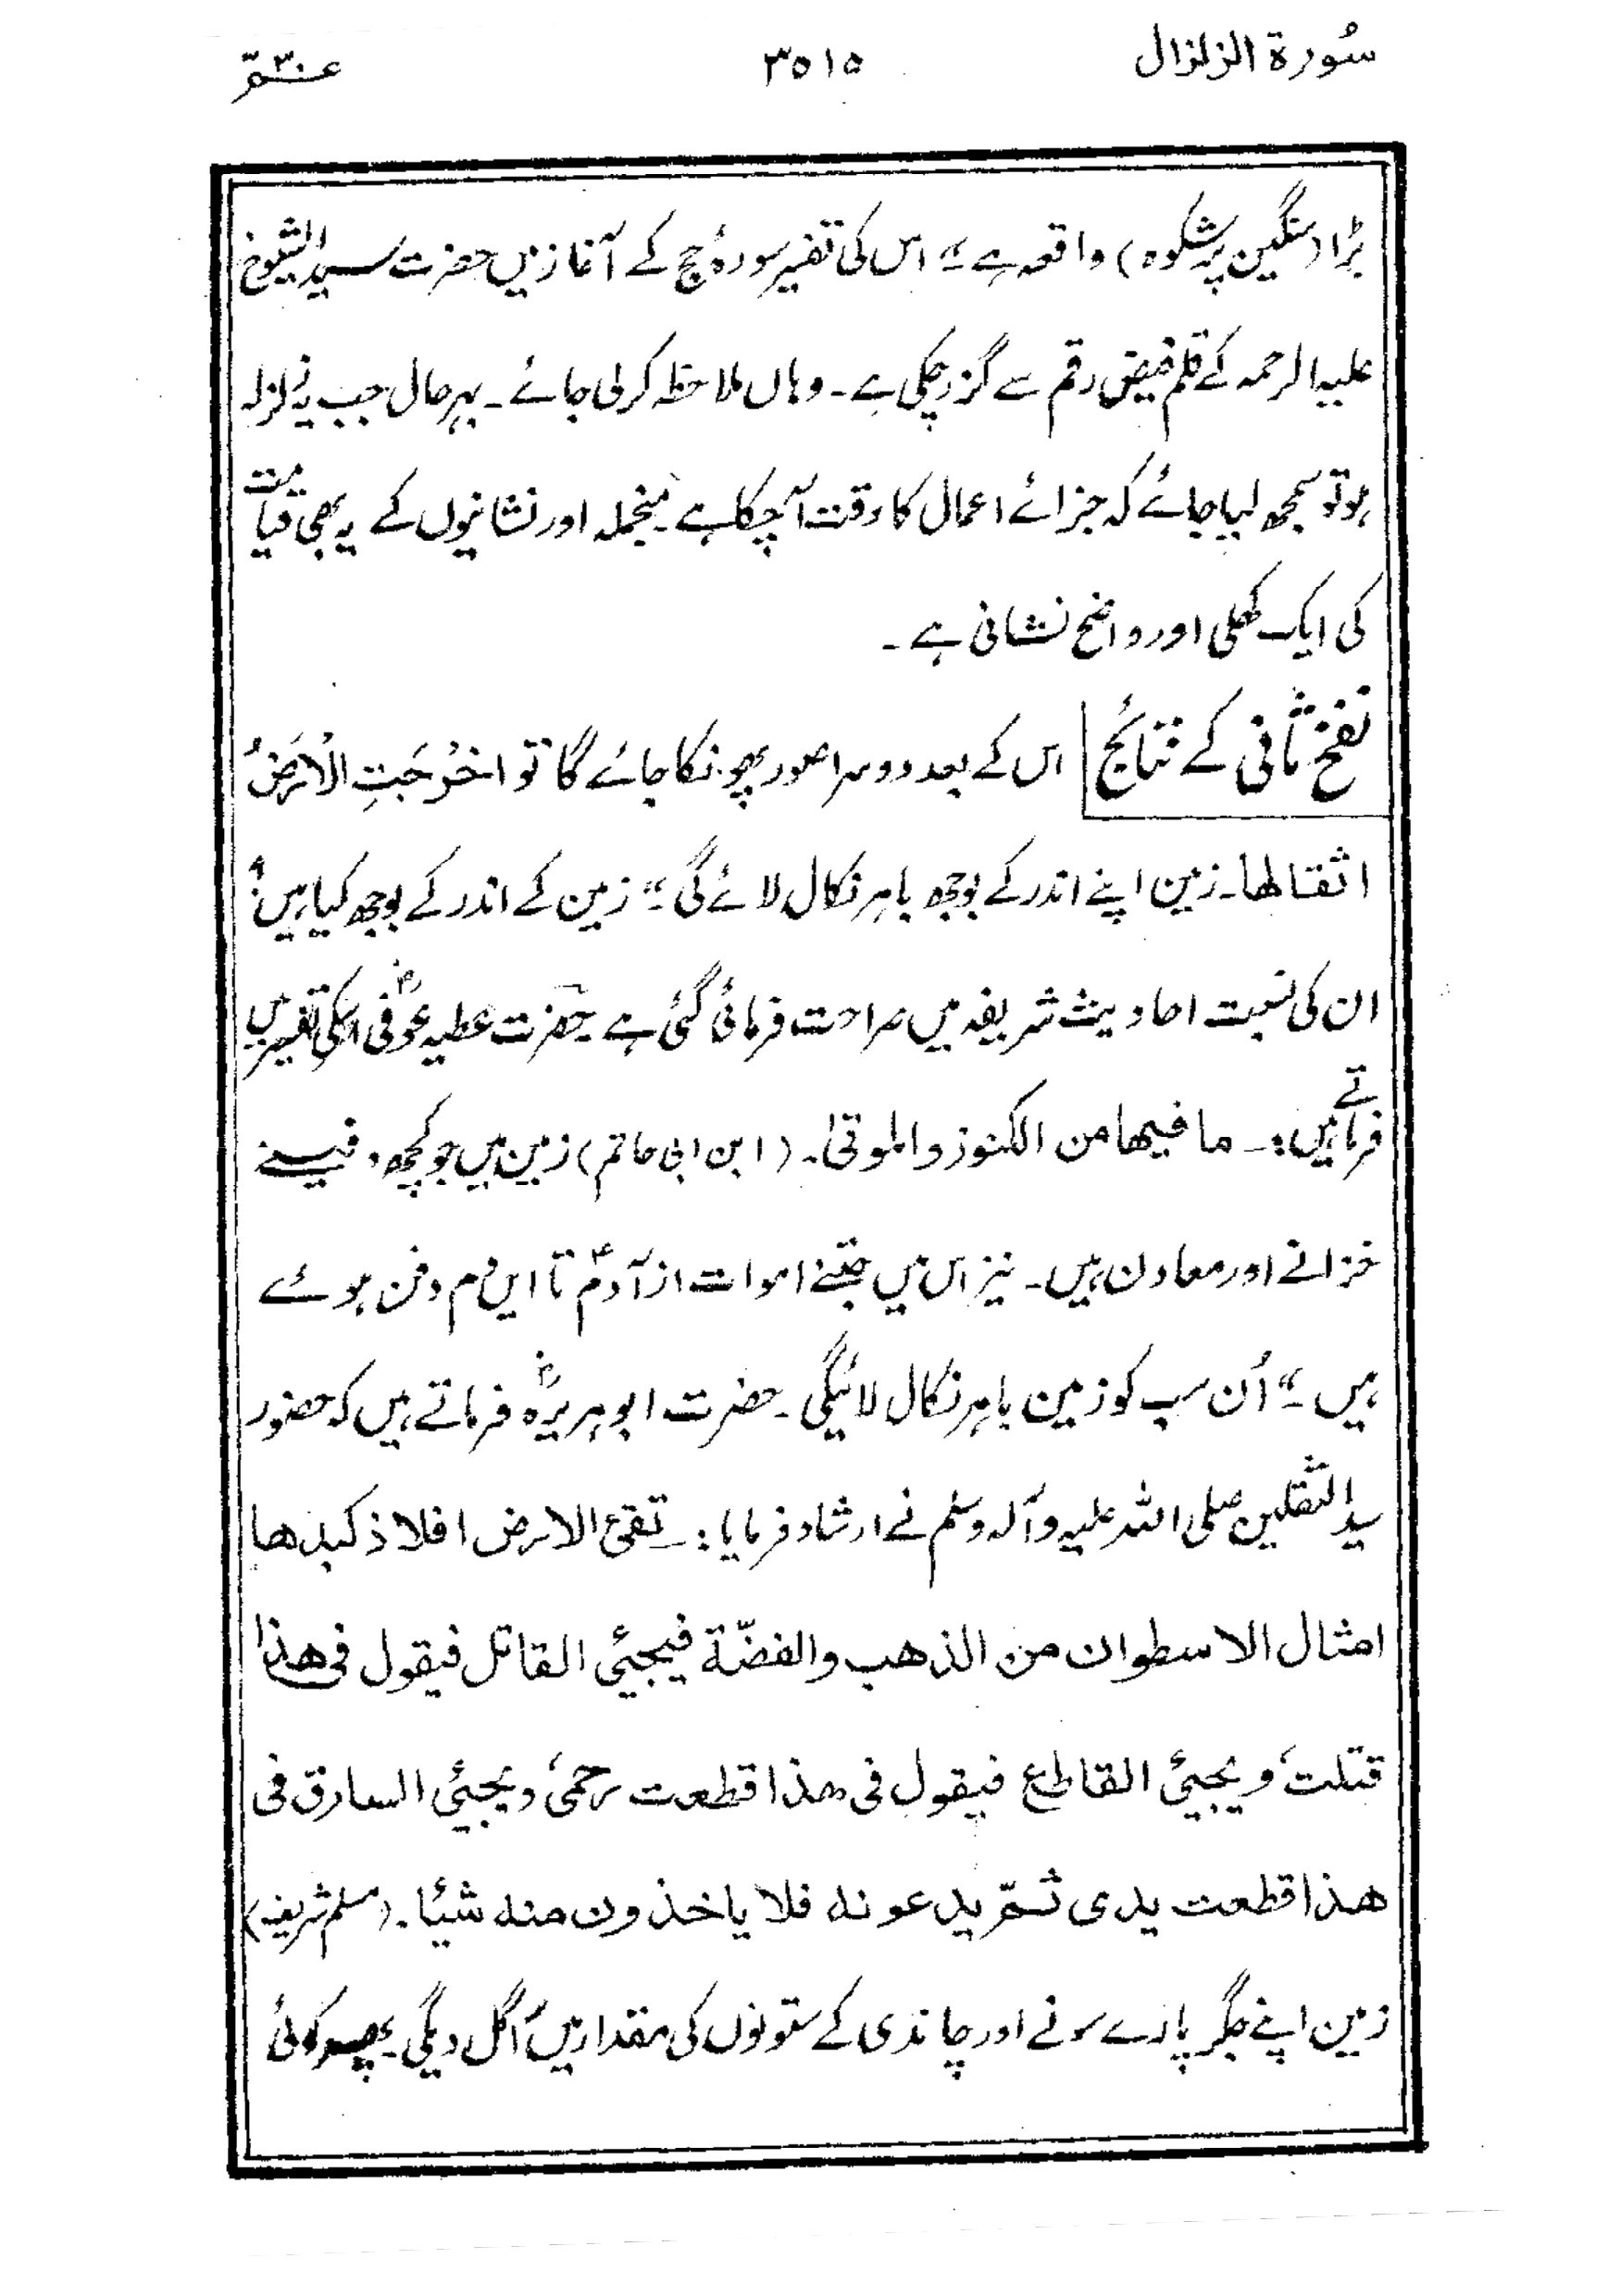 سُورة الزلزال ۳۵۱۵ عــم ۳۰
بڑا (سنگین پرشکوہ) واقعہ ہے" اس کی تفسیر سورۂ حج کے آغاز میں حضرت سید الشیوخ
علیہ الرحمہ کے قلم فیض رقم سے گزر چکی ہے۔ وہاں ملاحظہ کرلی جائے۔ بہر حال جب یہ زلزلہ
ہو تو سمجھ لیا جائے کہ جزائے اعمال کا وقت آچکا ہے منجملہ اور نشانیوں کے یہ بھی قیامت
کی ایک کھلی اور واضح نشانی ہے۔
نفخ ثانی کے نتائج اس کے بعد دوسرا صور پھونکا جائے گا تو اخرَجَتِ الْاَرَضُ
اثقالھا۔ زمین اپنے اندر کے بوجھ باہر نکال لائے گی" زمین کے اندر کے بوجھ کیا ہیں؟
ان کی نسبت احادیث شریفہ میں صراحت فرمائی گئی ہے۔ حضرت عطیہ عوفیؒ اسکی تفسیر میں
فرماتے ہیں:۔ ما فیھا من الکنوز والموتیٰ۔ (ابن ابی حاتم) زمین میں جو کچھ دفینے
خزانے اور معادن ہیں۔ نیز اس میں جتنے اموات از آدمؑ تا ایں دم دفن ہوئے
ہیں" اُن سب کو زمین باہر نکال لائیگی۔ حضرت ابو ہریرہؓ فرماتے ہیں کہ حضور
سید الثقلین صلی اللہ علیہ وآلہ وسلم نے ارشاد فرمایا:۔ تقیٔ الارض افلاذ کبدھا
امثال الاسطوان من الذھب والفضّة فیجیئ القاتل فیقول فی ھذا
قتلتُ و یجیئ القاطع فیقول فی ھذا قطعت رحمی و یجیئ السارق فی
ھذا قطعت یدی ثمّ یدعونه فلا یاخذون منه شیئا۔ (مسلم شریف)
زمین اپنے جگر پارے سونے اور چاندی کے ستونوں کی مقدار میں اُگل دیگی پھر کوئی